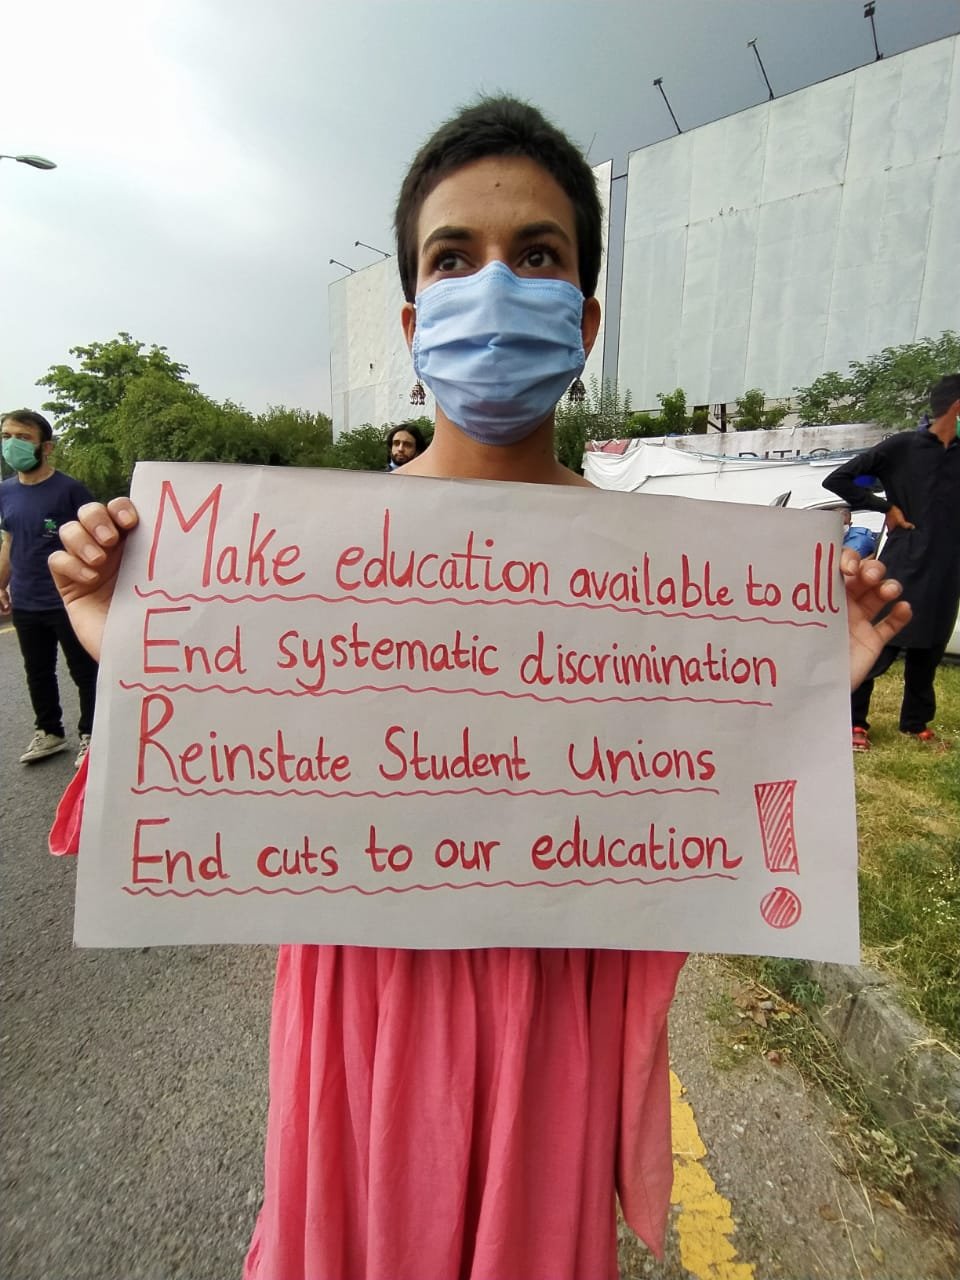 Make education available to all
End systematic discrimination
Reinstate Student Unions
End cuts to our education!